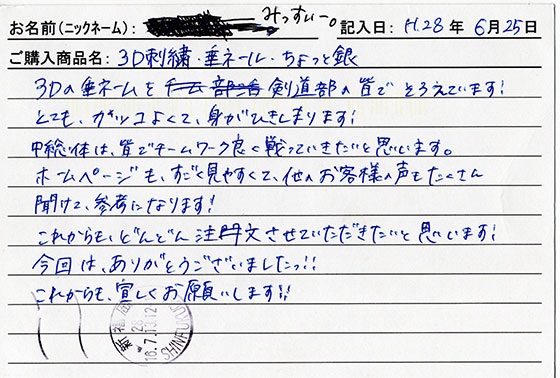 お名前(ニックネーム): みっすぃー。 記入日: H.28 年 6月25日
ご購入商品名: 3D刺繍・垂ネール・ちょっと銀
3Dの垂ネームを 剣道部の皆でそろえています!
とても、カッコよくて、身がひきしまります!
中総体は、皆でチームワーク良く戦っていきたいと思います。
ホームページも、すごく見やすくて、他のお客様の声もたくさん
聞けて、参考になります!
これからも、どんどん注文させていただきたいと思います!
今回は、ありがとうございましたっ!!
これからも、宜しくお願いします!!
新福岡
28
16.7.13.12
SHINFUKU